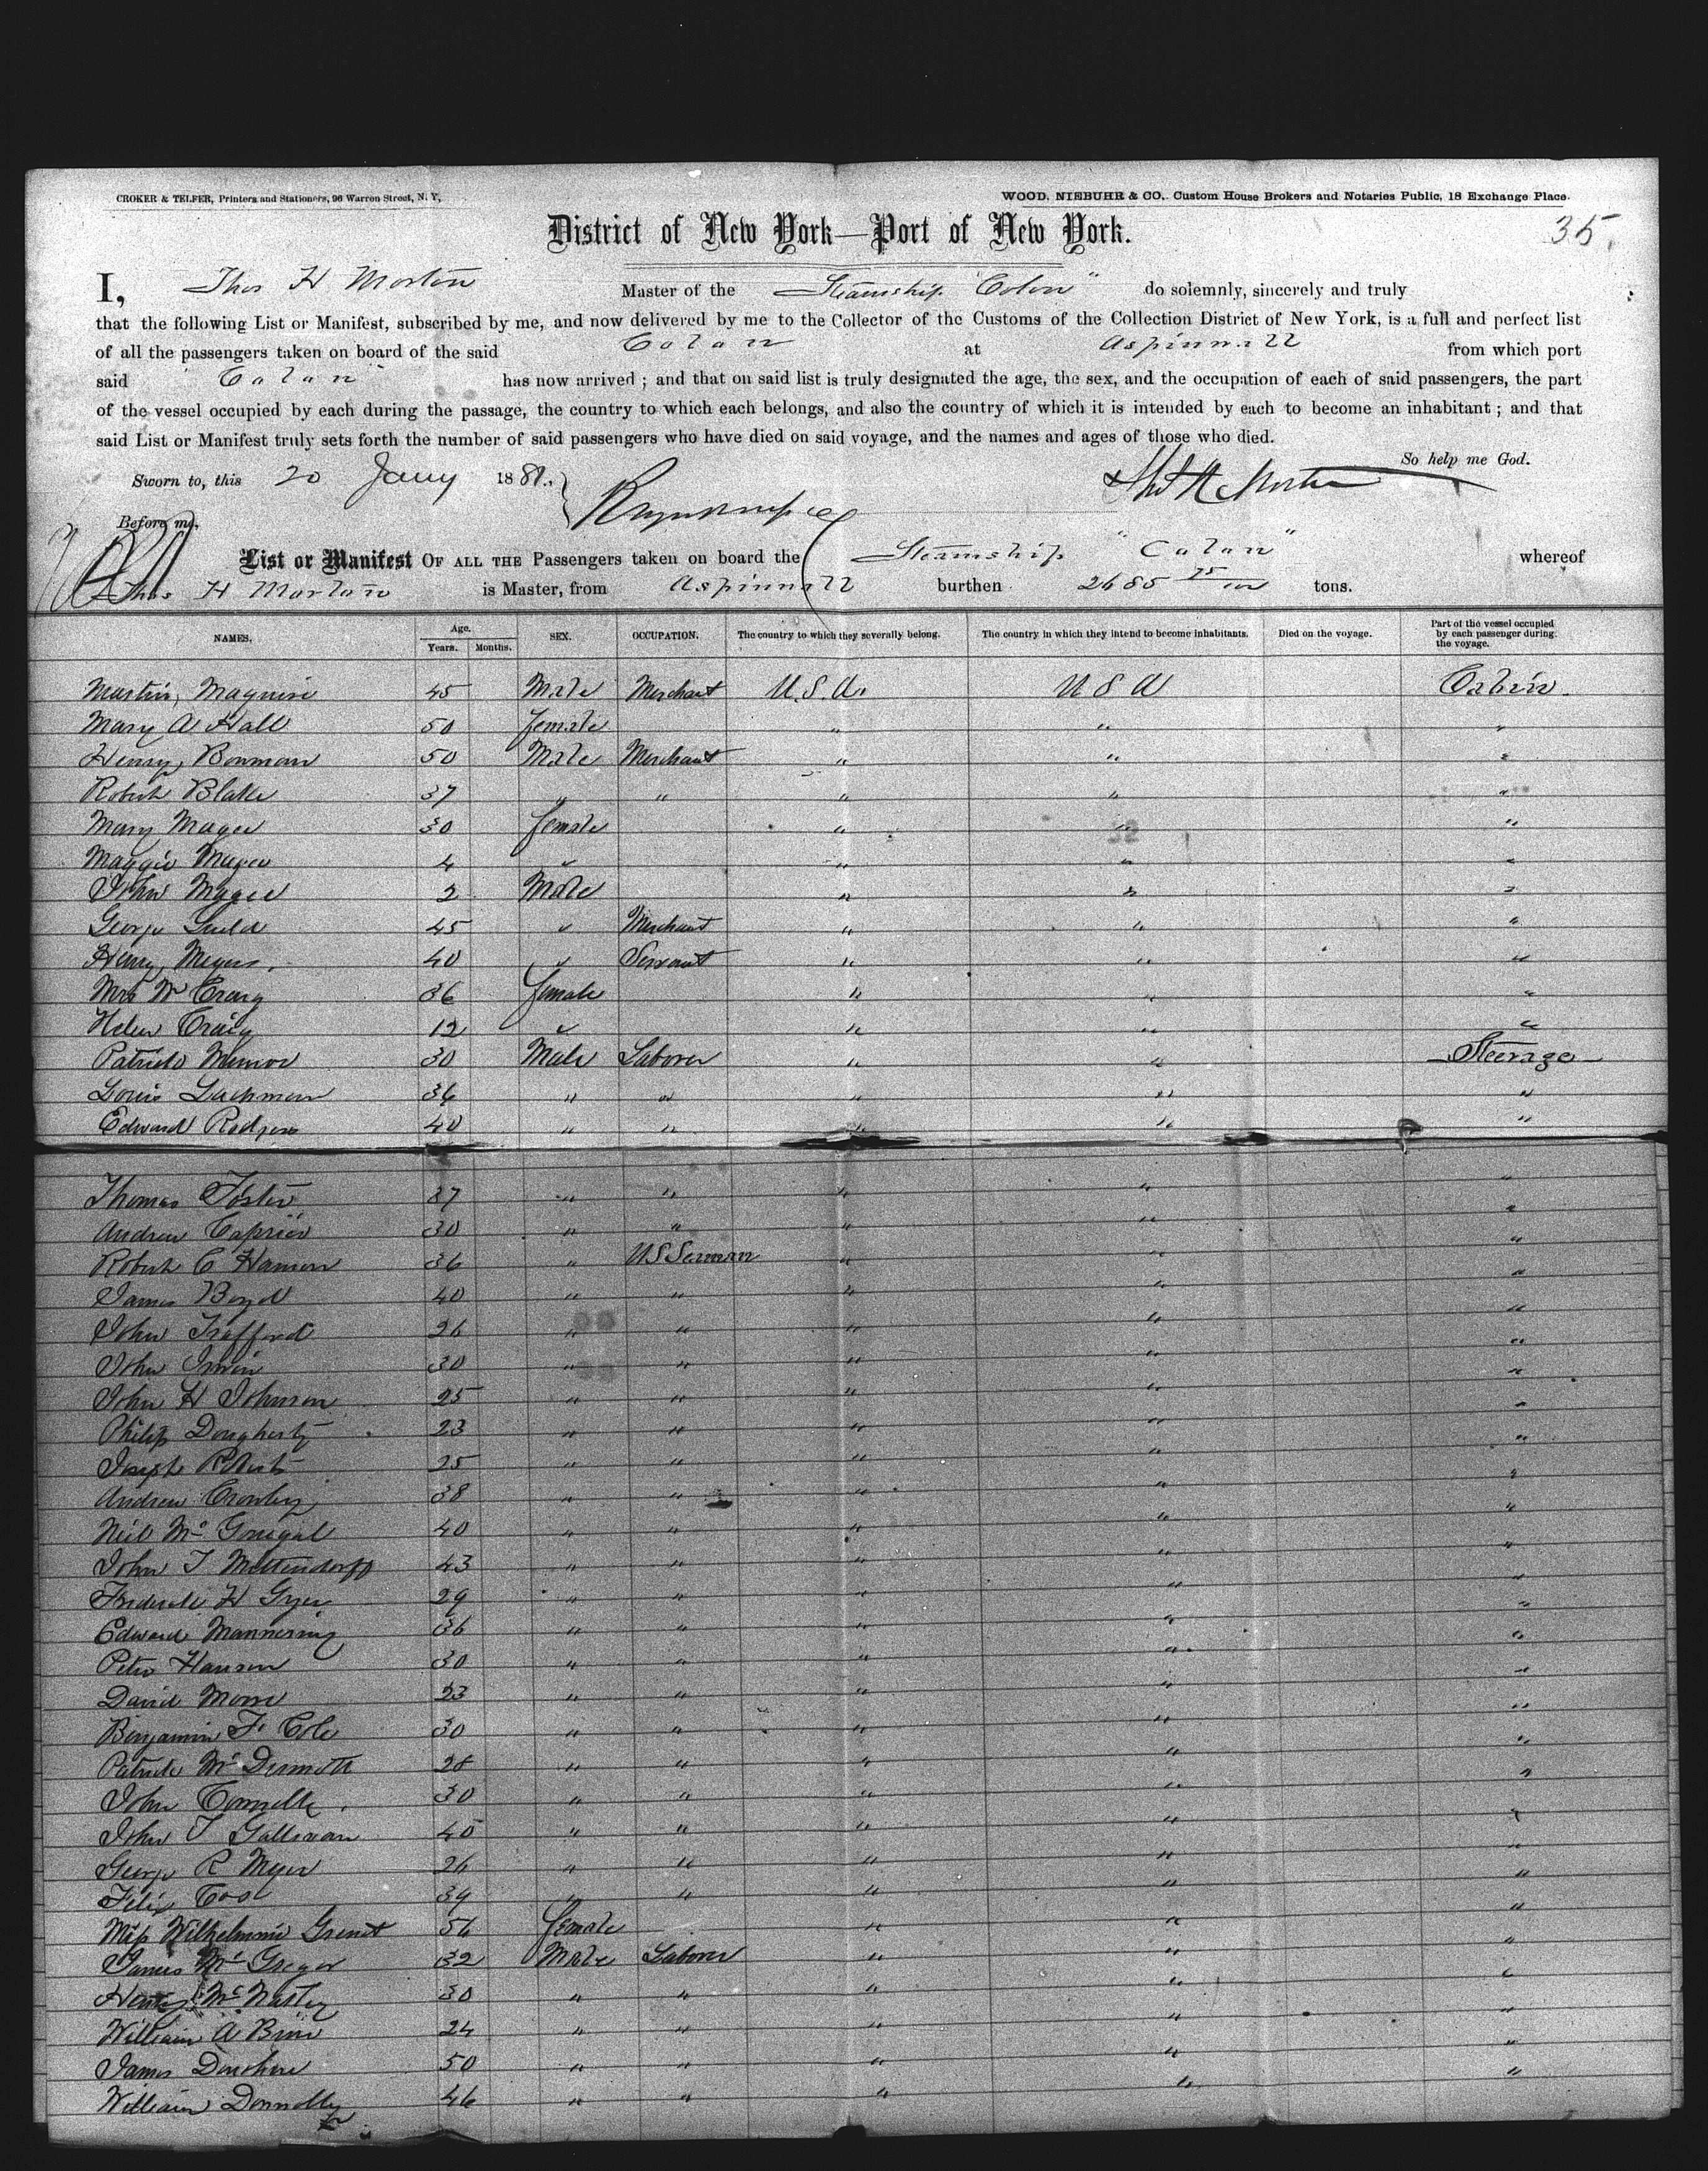 CROKER & TELFER, Printers and Stationers, 96 Warren Street, N. Y, WOOD, NIEBUHR & CO,. Custom House Brokers and Notaries Public, 18 Exchange Place.
District of New York—Port of New York. 35.
I, Thos H Morton Master of the Steamship "Colon" do solemnly, sincerely and truly
that the following List or Manifest, subscribed by me, and now delivered by me to the Collector of the Customs of the Collection District of New York, is a full and perfect list
of all the passengers taken on board of the said Colon at Aspinwall from which port
said "Colon" has now arrived ; and that on said list is truly designated the age, the sex, and the occupation of each of said passengers, the part
of the vessel occupied by each during the passage, the country to which each belongs, and also the country of which it is intended by each to become an inhabitant ; and that
said List or Manifest truly sets forth the number of said passengers who have died on said voyage, and the names and ages of those who died.
So help me God.
Sworn to, this 20 Jany 1881. Thos H Morton
Before me,
List or Manifest OF ALL THE Passengers taken on board the Steamship "Colon" whereof
Thos H Morton is Master, from Aspinwall burthen 2685 75/100 tons.
NAMES. Age. Years. Months. SEX. OCCUPATION. The country to which they severally belong. The country in which they intend to become inhabitants. Died on the voyage. Part of the vessel occupied by each passenger during the voyage.
Martin Maguire 45 Male Merchant U.S.A. U S A Cabin
Mary A Hall 50 female " " "
Henry Bowman 50 Male Merchant " " "
Robert Blake 37 " " " " "
Mary Magee 30 female " " "
Maggie Magee 4 " " " "
John Magee 2 Male " " "
George Guild 45 " Merchant " " "
Henry Meyers 40 " Servant " " "
Mrs Wm Craig 36 female " " "
Helen Craig 12 " " " "
Patrick Munroe 30 Male Laborer " " Steerage
Louis Lachman 36 " " " " "
Edward Rodgers 40 " " " " "
Thomas Foster 37 " " " " "
Andrew 30 " " " " "
Robert C Hanson 36 " U S Seaman " " "
James Boyd 40 " " " " "
John Trafford 26 " " " " "
John Irwin 30 " " " " "
John H Johnson 25 " " " " "
Philip Dougherty 23 " " " " "
Joseph Roberts 25 " " " " "
Andrew Crowley 38 " " " " "
Neil McGonigal 40 " " " " "
John T Mittendorff 43 " " " " "
Frederick H Gyer 29 " " " " "
Edward Mannering 36 " " " " "
Peter Hansen 30 " " " " "
David Morse 23 " " " " "
Benjamin F. Cole 30 " " " " "
Patrick McDermott 28 " " " " "
John Connolly 30 " " " " "
John T Gallivan 40 " " " " "
George R Meyer 26 " " " " "
Felix 39 " " " " "
Miss Wilhelmine 56 female " " "
James McGregor 32 Male Laborer " " "
Henry McNasty 30 " " " " "
William A 24 " " " " "
James Donohue 50 " " " " "
William Donnolly 46 " " " " "